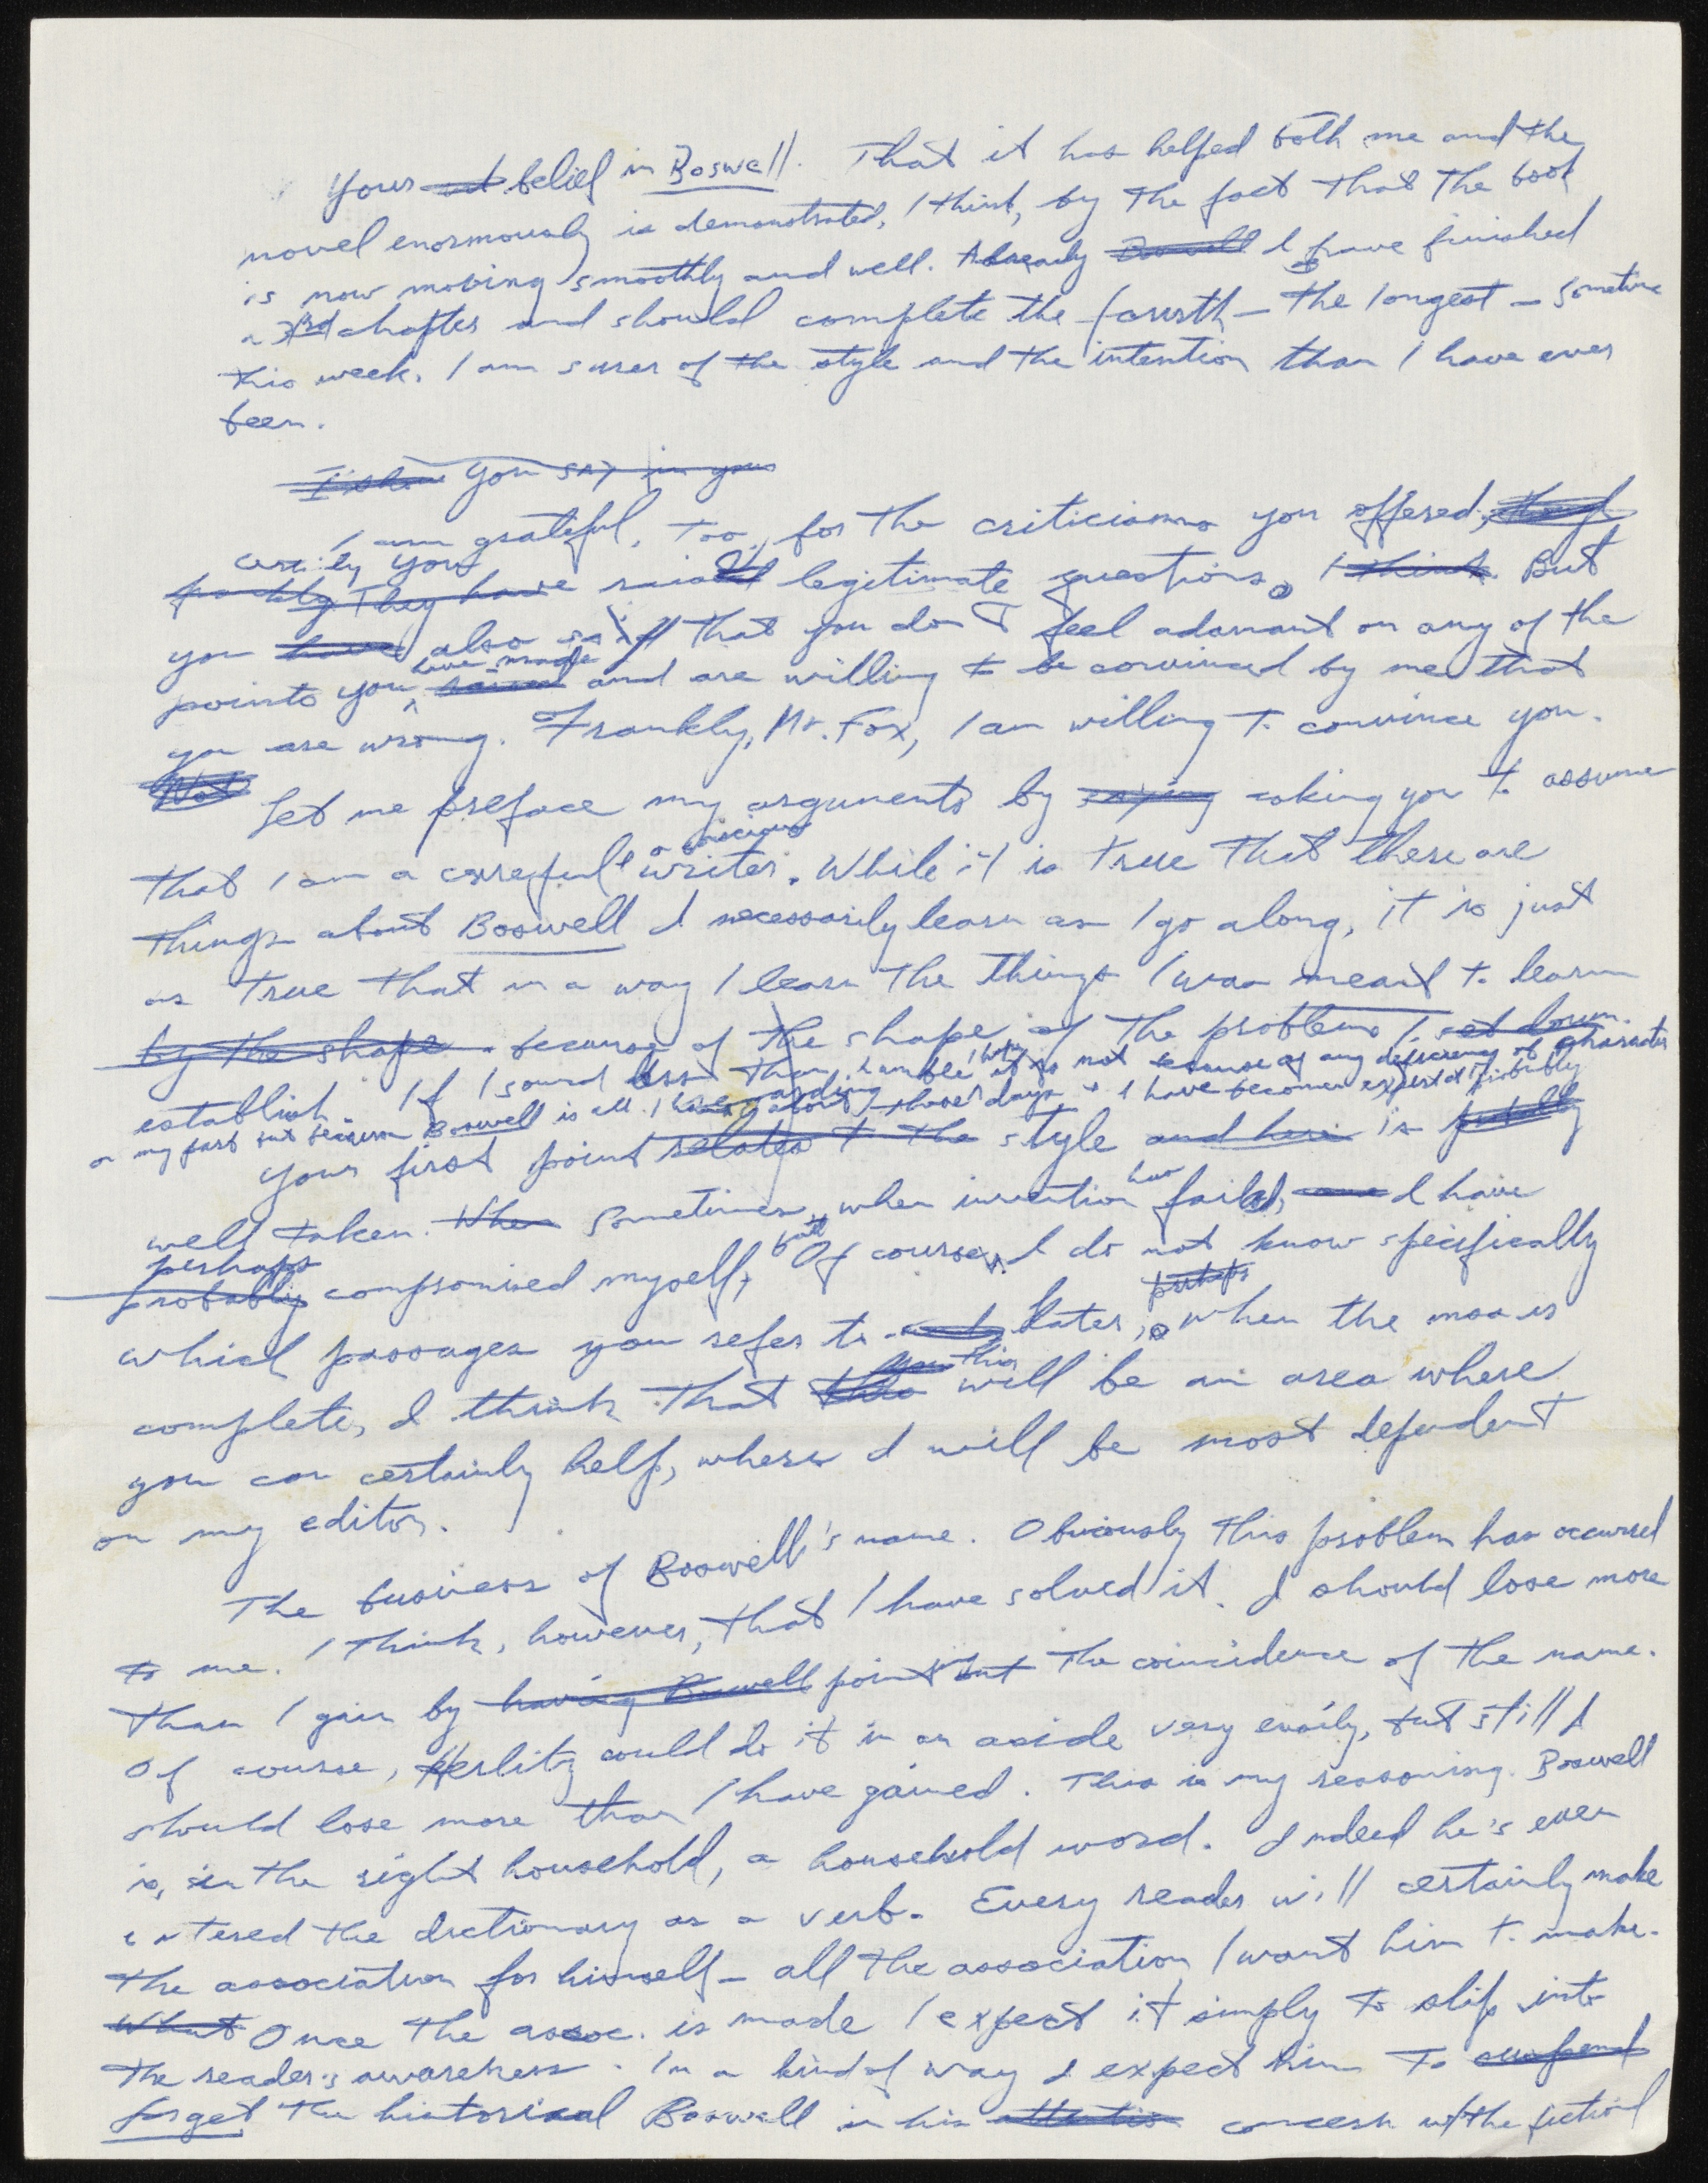 Yours ~~and~~ belief in Boswell. That it has helped both me and the
novel enormously is demonstrated, I think, by the fact that the book
is now moving smoothly and well. Already ~~Boswell~~ I have finished
a 3rd chapter and should complete the fourth – the longest – sometime
this week. I am surer of the style and the intention than I have ever
been.
~~I show you say in your~~
I am grateful, too, for the criticisms you offered, ~~though~~
certainly you
~~frankly they have~~ raised legitimate questions. ~~I think~~ But
you ~~have~~ also said that you don't feel adamant on any of the
have made
points you ~~raised~~ and are willing to be convinced by me that
you are wrong. Frankly, Mr. Fox, I am willing to convince you.
~~Not~~ Let me preface my arguments by ~~saying~~ asking you to assume
a conscious
that I am a careful & writer. While it is true that there are
things about Boswell I necessarily learn as I go along, it is just
as true that in a way I learn the things I was meant to learn
~~by the shape~~ because of the shape of the problems I ~~set down~~.
establish. If I sound less than humble, I hope, it is not because of any deficiency of character
on my part but because Boswell is all I have about these days & I have become expert. Probably
Your first point ~~relates to the~~ style ~~and here~~ is ~~probably~~
well taken. ~~When~~ Sometimes, when invention has failed, I have
perhaps
~~probably~~ compromised myself, but of course, I do not know specifically
~~perhaps~~
which passages you refer to. Later, when the mss is
this
complete, I think that ~~this~~ will be an area where
you can certainly help, where I will be most dependent
on my editor.
The business of Boswell's name. Obviously this problem has occurred
to me. I think, however, that I have solved it. I should lose more
than I gain by ~~having Boswell~~ point out the coincidence of the name.
Of course, Herlitz could do it in an aside very easily, but still I
should lose more than I have gained. This is my reasoning. Boswell
is, in the right household, a household word. Indeed he's even
entered the dictionary as a verb. Every reader will certainly make
the association for himself – all the association I want him to make.
~~What~~ Once the assoc. is made I expect it simply to slip into
the reader's awareness. In a kind of way I expect him to ~~suspend~~
forget the historical Boswell in his ~~attention~~ concern w/ the fictional